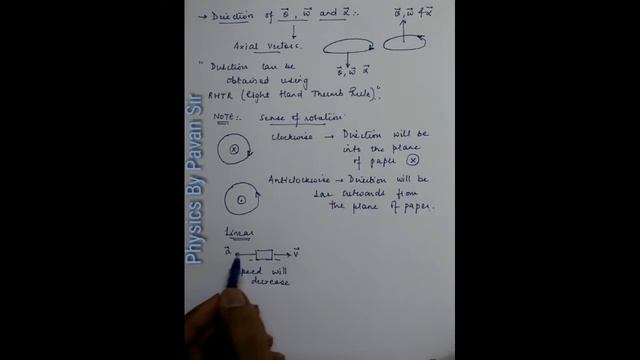 → Direction of θ⃗, ω⃗ and α⃗ :-
θ⃗, ω⃗ & α⃗
Axial vectors.
θ⃗, ω⃗ α⃗
" Direction can be
obtained using
RHTR (Right Hand Thumb Rule)."
NOTE:- Sense of rotation
Clockwise → Direction will be
into the plane
of paper ⊗
Anticlockwise → Direction will be
⊥ar outwards from
the plane of paper.
Linear
a⃗ v⃗
speed will
decrease
Physics By Pavan Sir